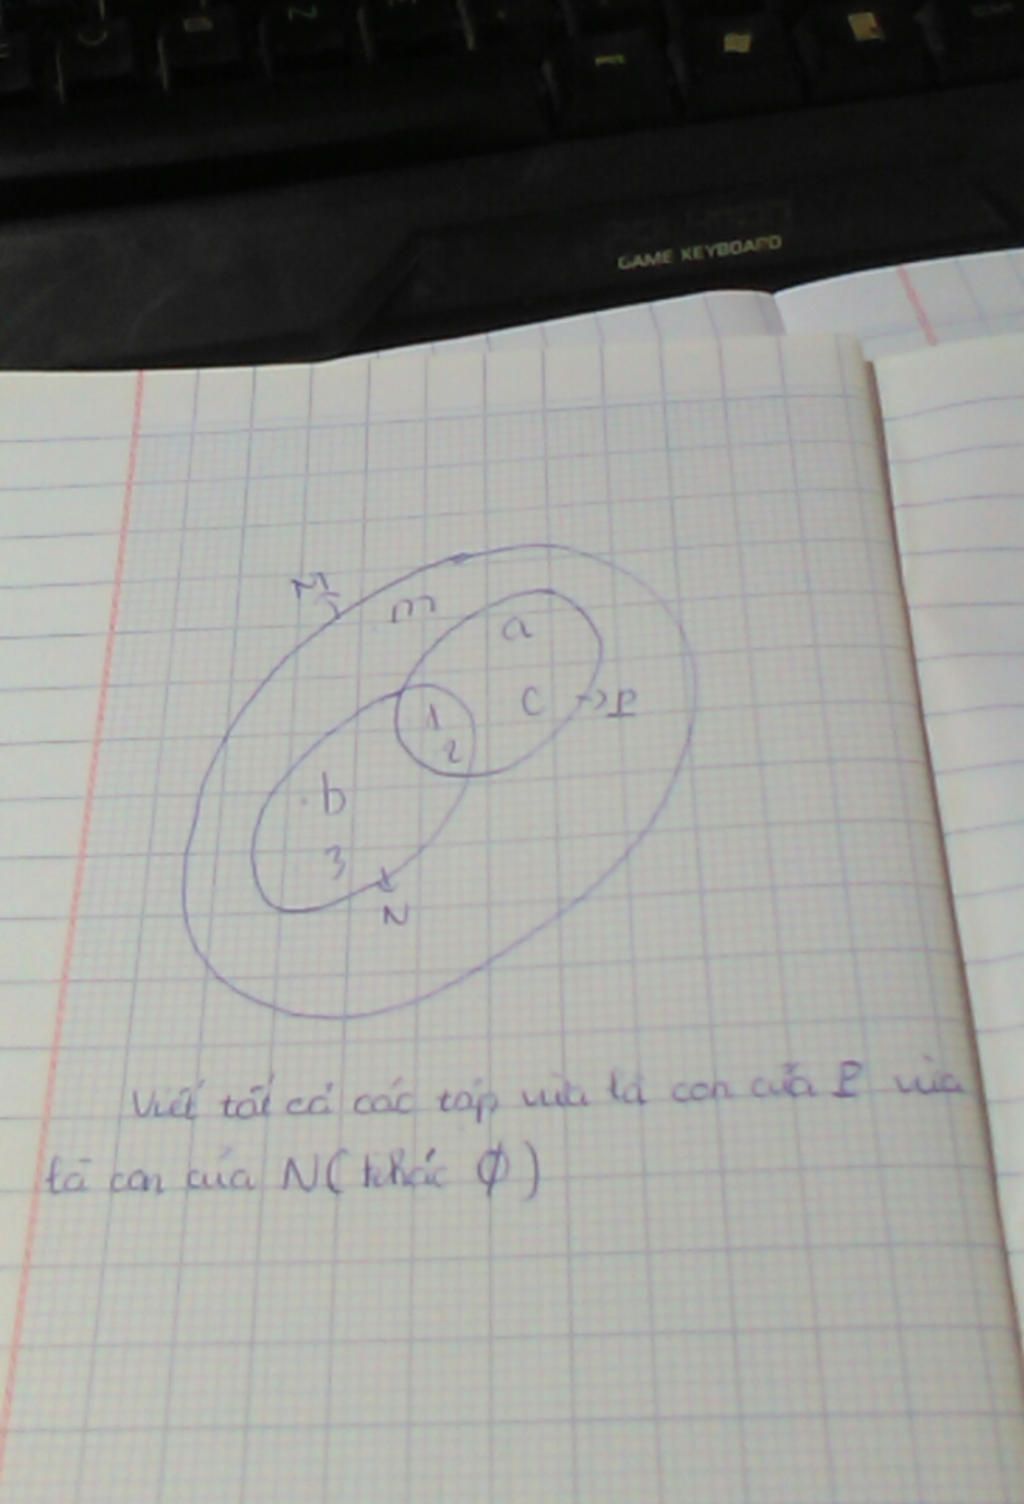 N
GAME KEYBOARD
M
m
a
c
P
1
2
b
3
N
Viết tất cả các tập vừa là con của P vừa
là con của N (khác ∅)